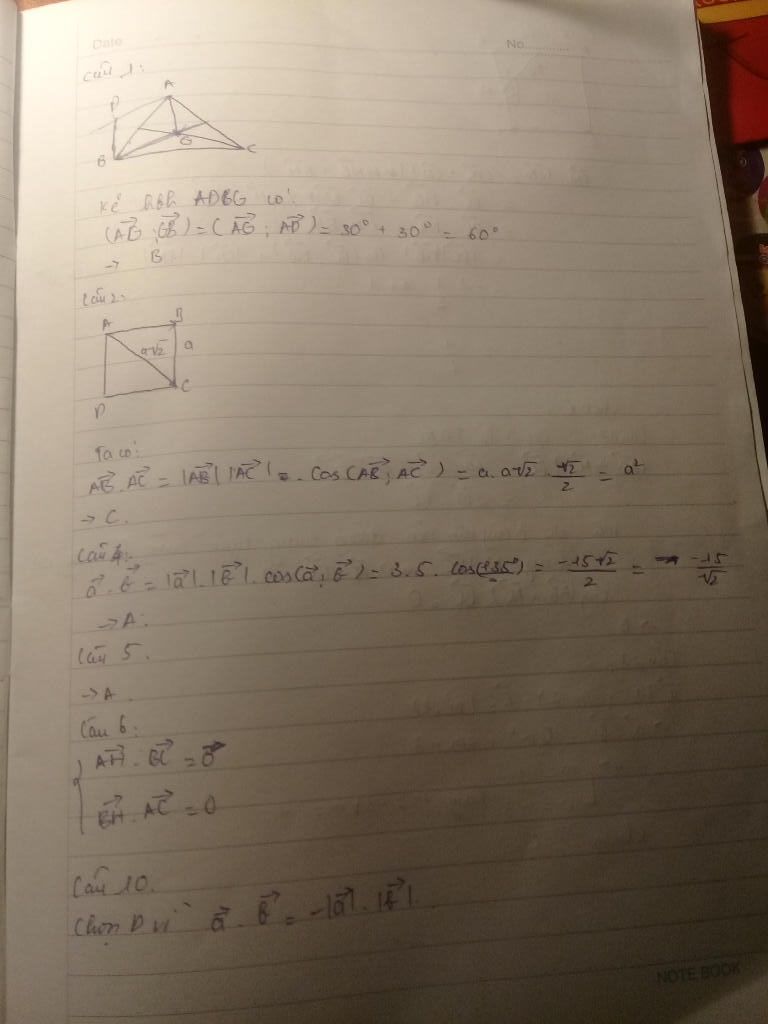 Date
No............
Câu 1:
A
D
G
B
C
Kẻ hbh ADBG có:
(AG→; GB→) = (AG→; AD→) = 30° + 30° = 60°
→ B
Câu 2:
A
B
a√2
a
C
D
Ta có:
AB→. AC→ = |AB→| |AC→| . cos(AB→; AC→) = a. a√2 . √2/2 = a²
→ C.
Câu 4:
a→. b→ = |a→|. |b→|. cos(a→; b→) = 3.5. cos(135°) = -15√2/2 = -15/√2
→ A.
Câu 5.
→ A
Câu 6:
{ AH→. BC→ = 0
BH→. AC→ = 0
Câu 10.
Chọn D vì a→. b→ = -|a→|. |b→|.
NOTE BOOK